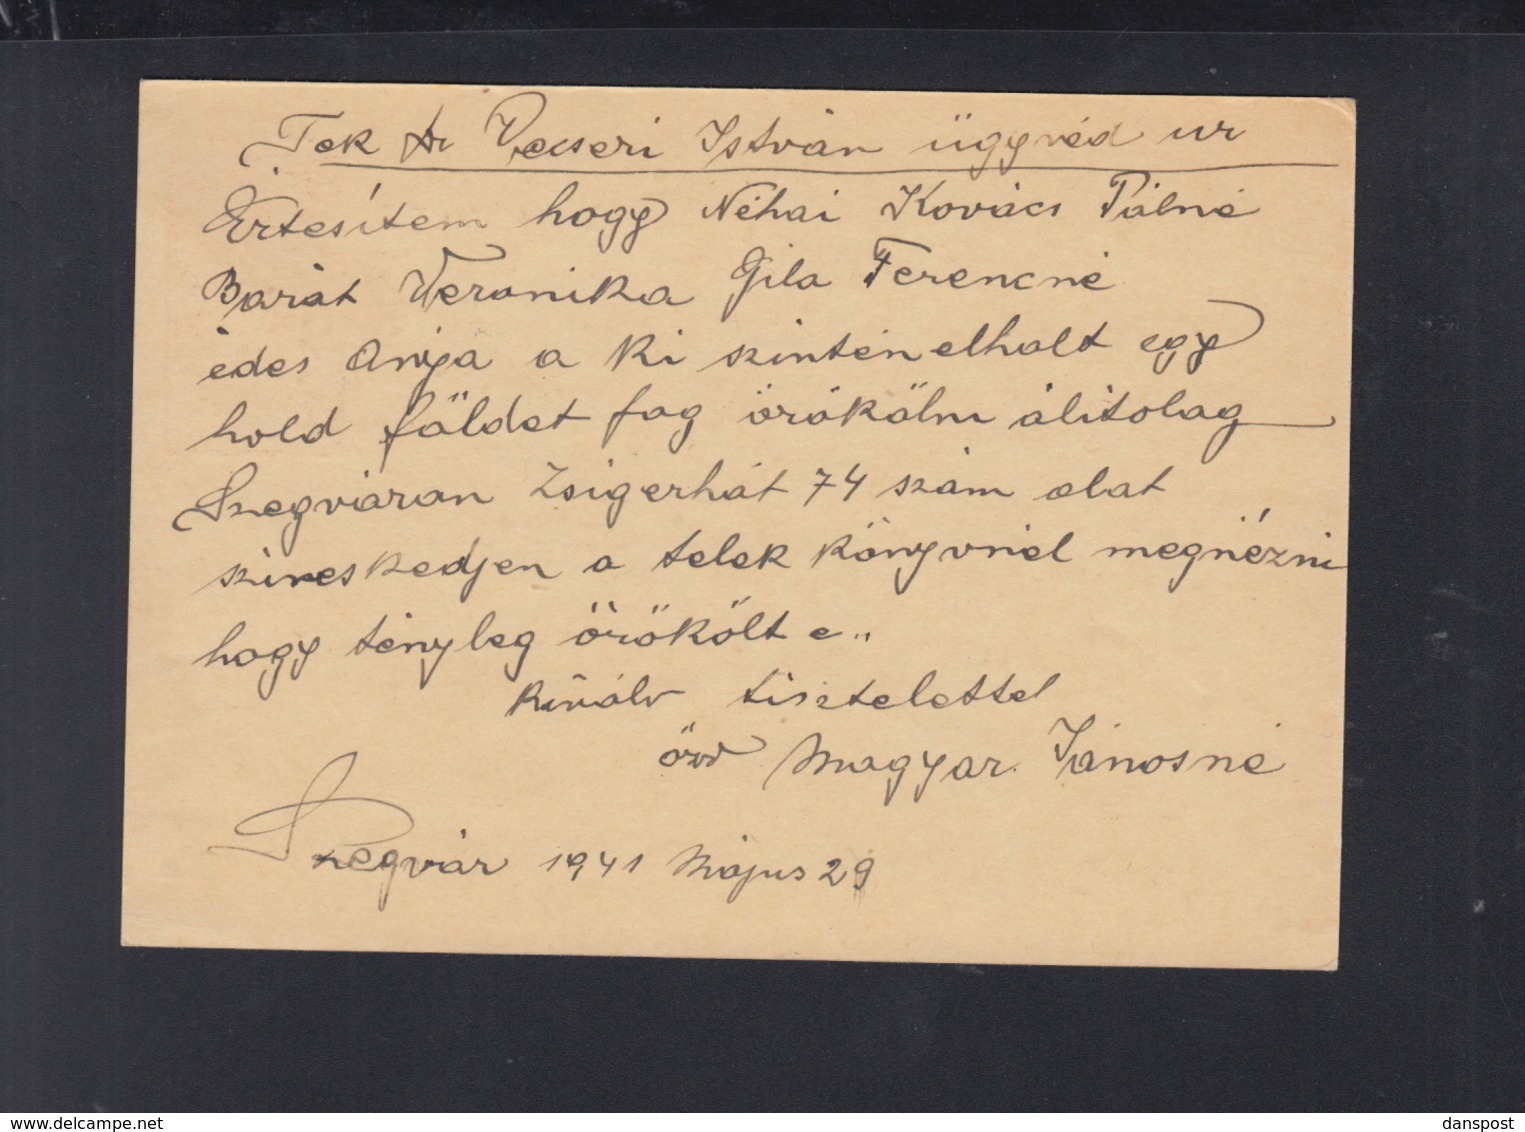 Tek Dr Vecseri István ügyvéd ur
Értesítem hogy Néhai Kovács Pálné
Barát Veronika Gila Ferencné
édes Anyja a ki szintén elholt egy
hold földet fog örökölni álitolag
Szegváron Zsigerhát 74 szám alat
sziveskedjen a telek könyvnél megnézni
hogy tényleg örökölt e"
kiváló tisztelettel
özv Magyar Jánosné
Szegvár 1941 Május 29
www.delcampe.net
danspost